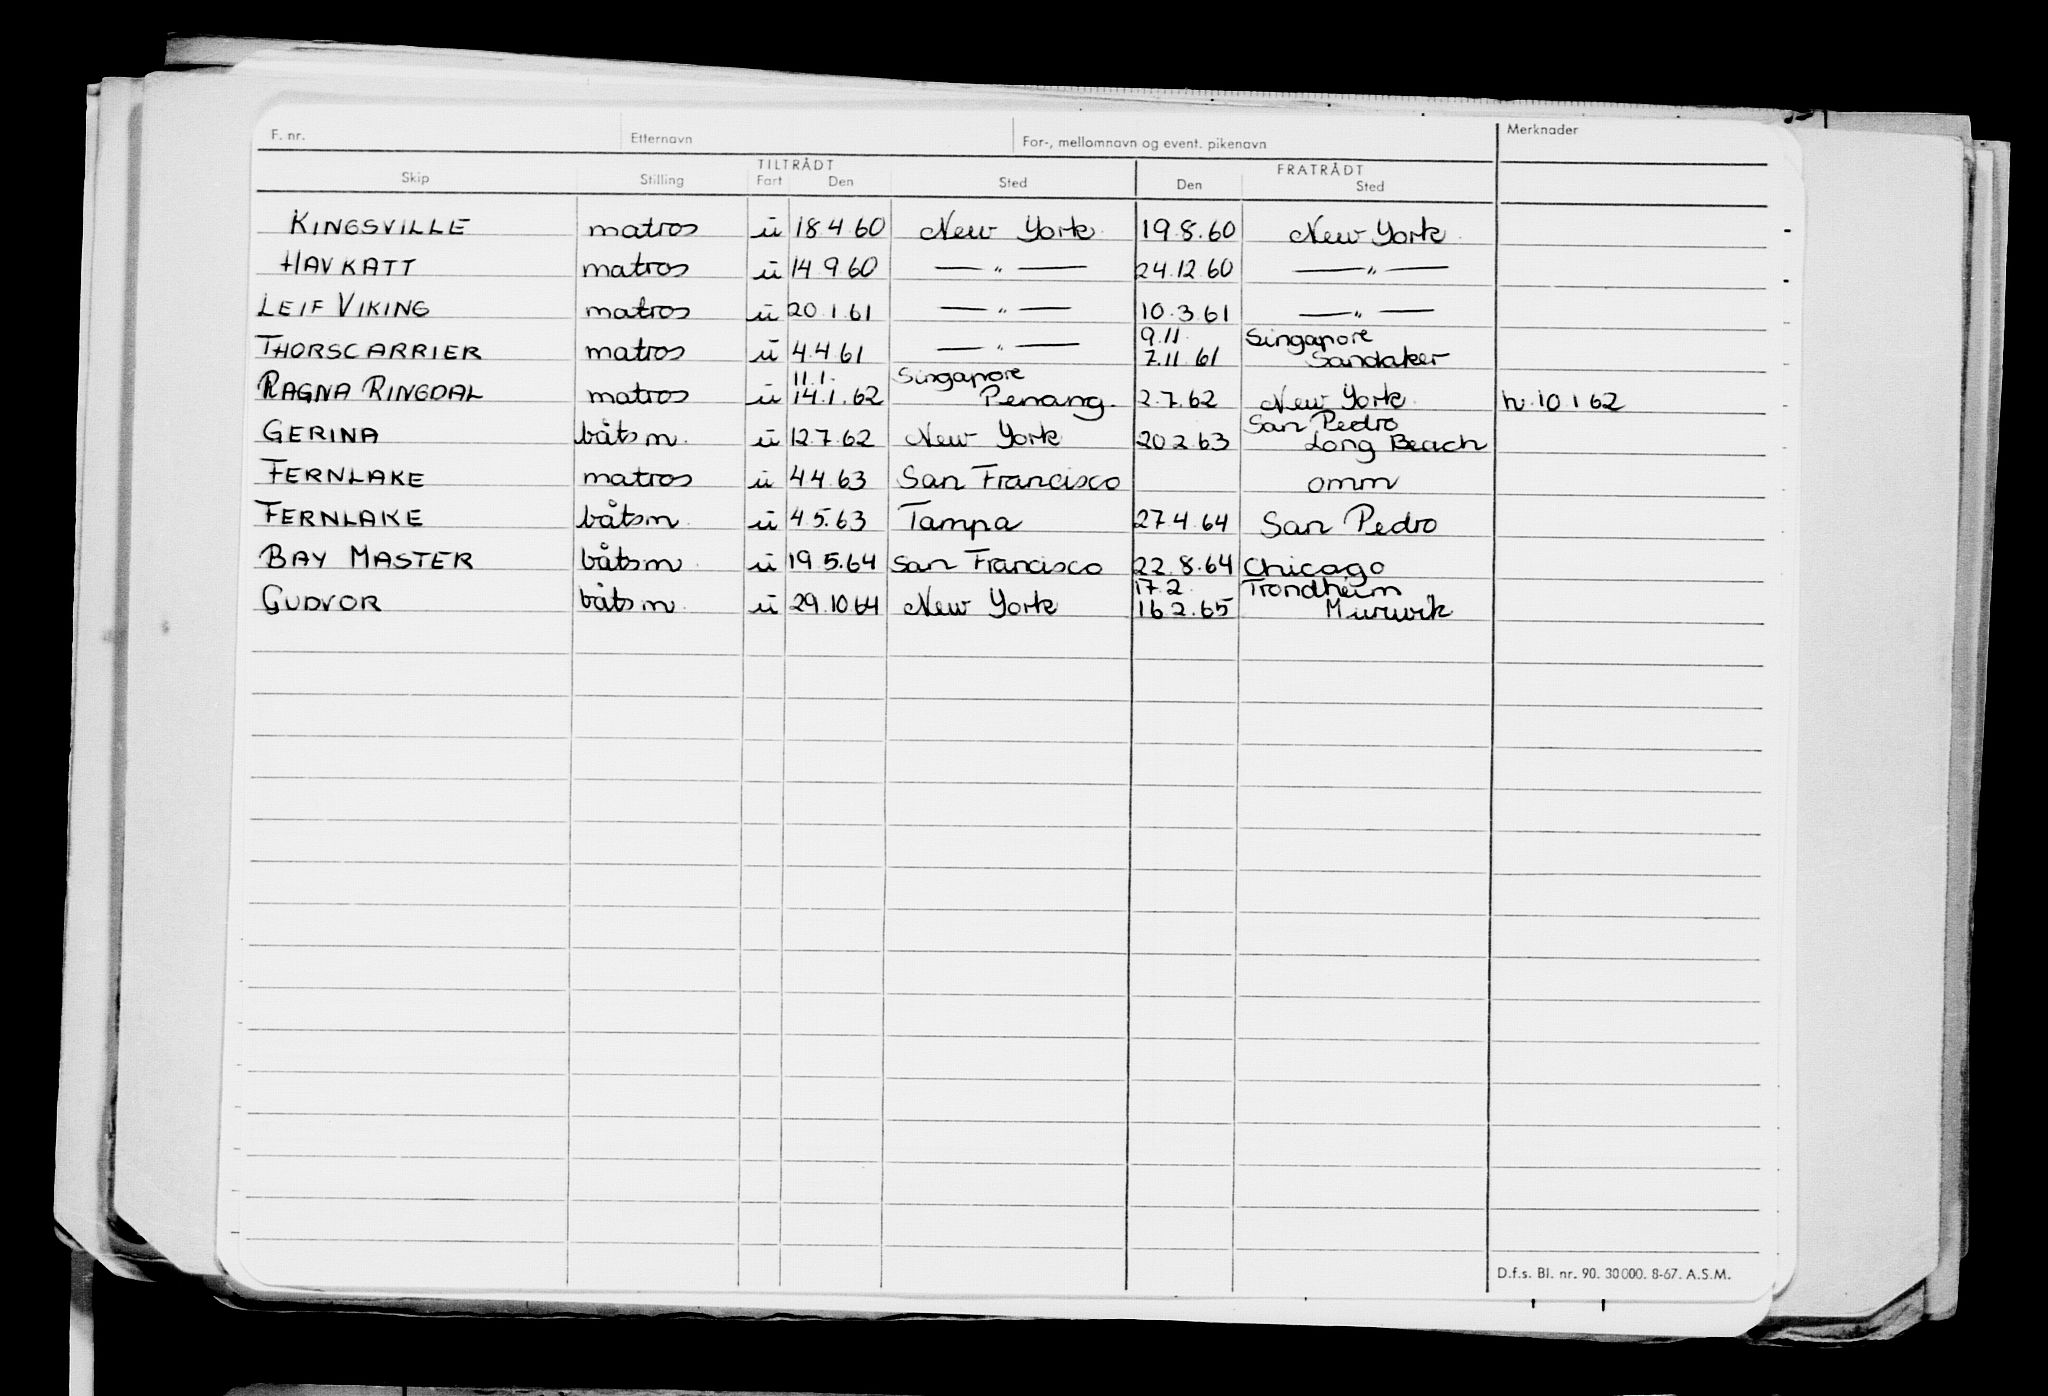 F. nr. Etternavn For-, mellomnavn og event. pikenavn Merknader
TILTRÅDT FRATRÅDT
Skip Stilling Fart Den Sted Den Sted
KINGSVILLE matros ü 18 4 60 New York 19.8.60 New York
HAVKATT matros ü 14 9 60 — " — 24.12 60 — " —
LEIF VIKING matros ü 20.1.61 — " — 10.3.61 — " —
9.11. Singapore
THORSCARRIER matros ü 4.4 61 — " — 7.11.61 Sandaker
11.1. Singapore
RAGNA RINGDAL matros ü 14.1.62 Penang. 2.7.62 New York h.10 1 62
San Pedro
GERINA båtsm. ü 12.7.62 New York 20 2.63 Long Beach
FERNLAKE matros ü 4 4.63 San Francisco omm
FERNLAKE båtsm. ü 4.5.63 Tampa 27.4.64 San Pedro
BAY MASTER båtsm. ü 19 5.64 San Francisco 22.8.64 Chicago
17.2. Trondheim
GUDVOR båtsm. ü 29.10 64 New York 16 2.65 Muruvik
D.f.s. Bl. nr. 90. 30000. 8-67. A.S.M.